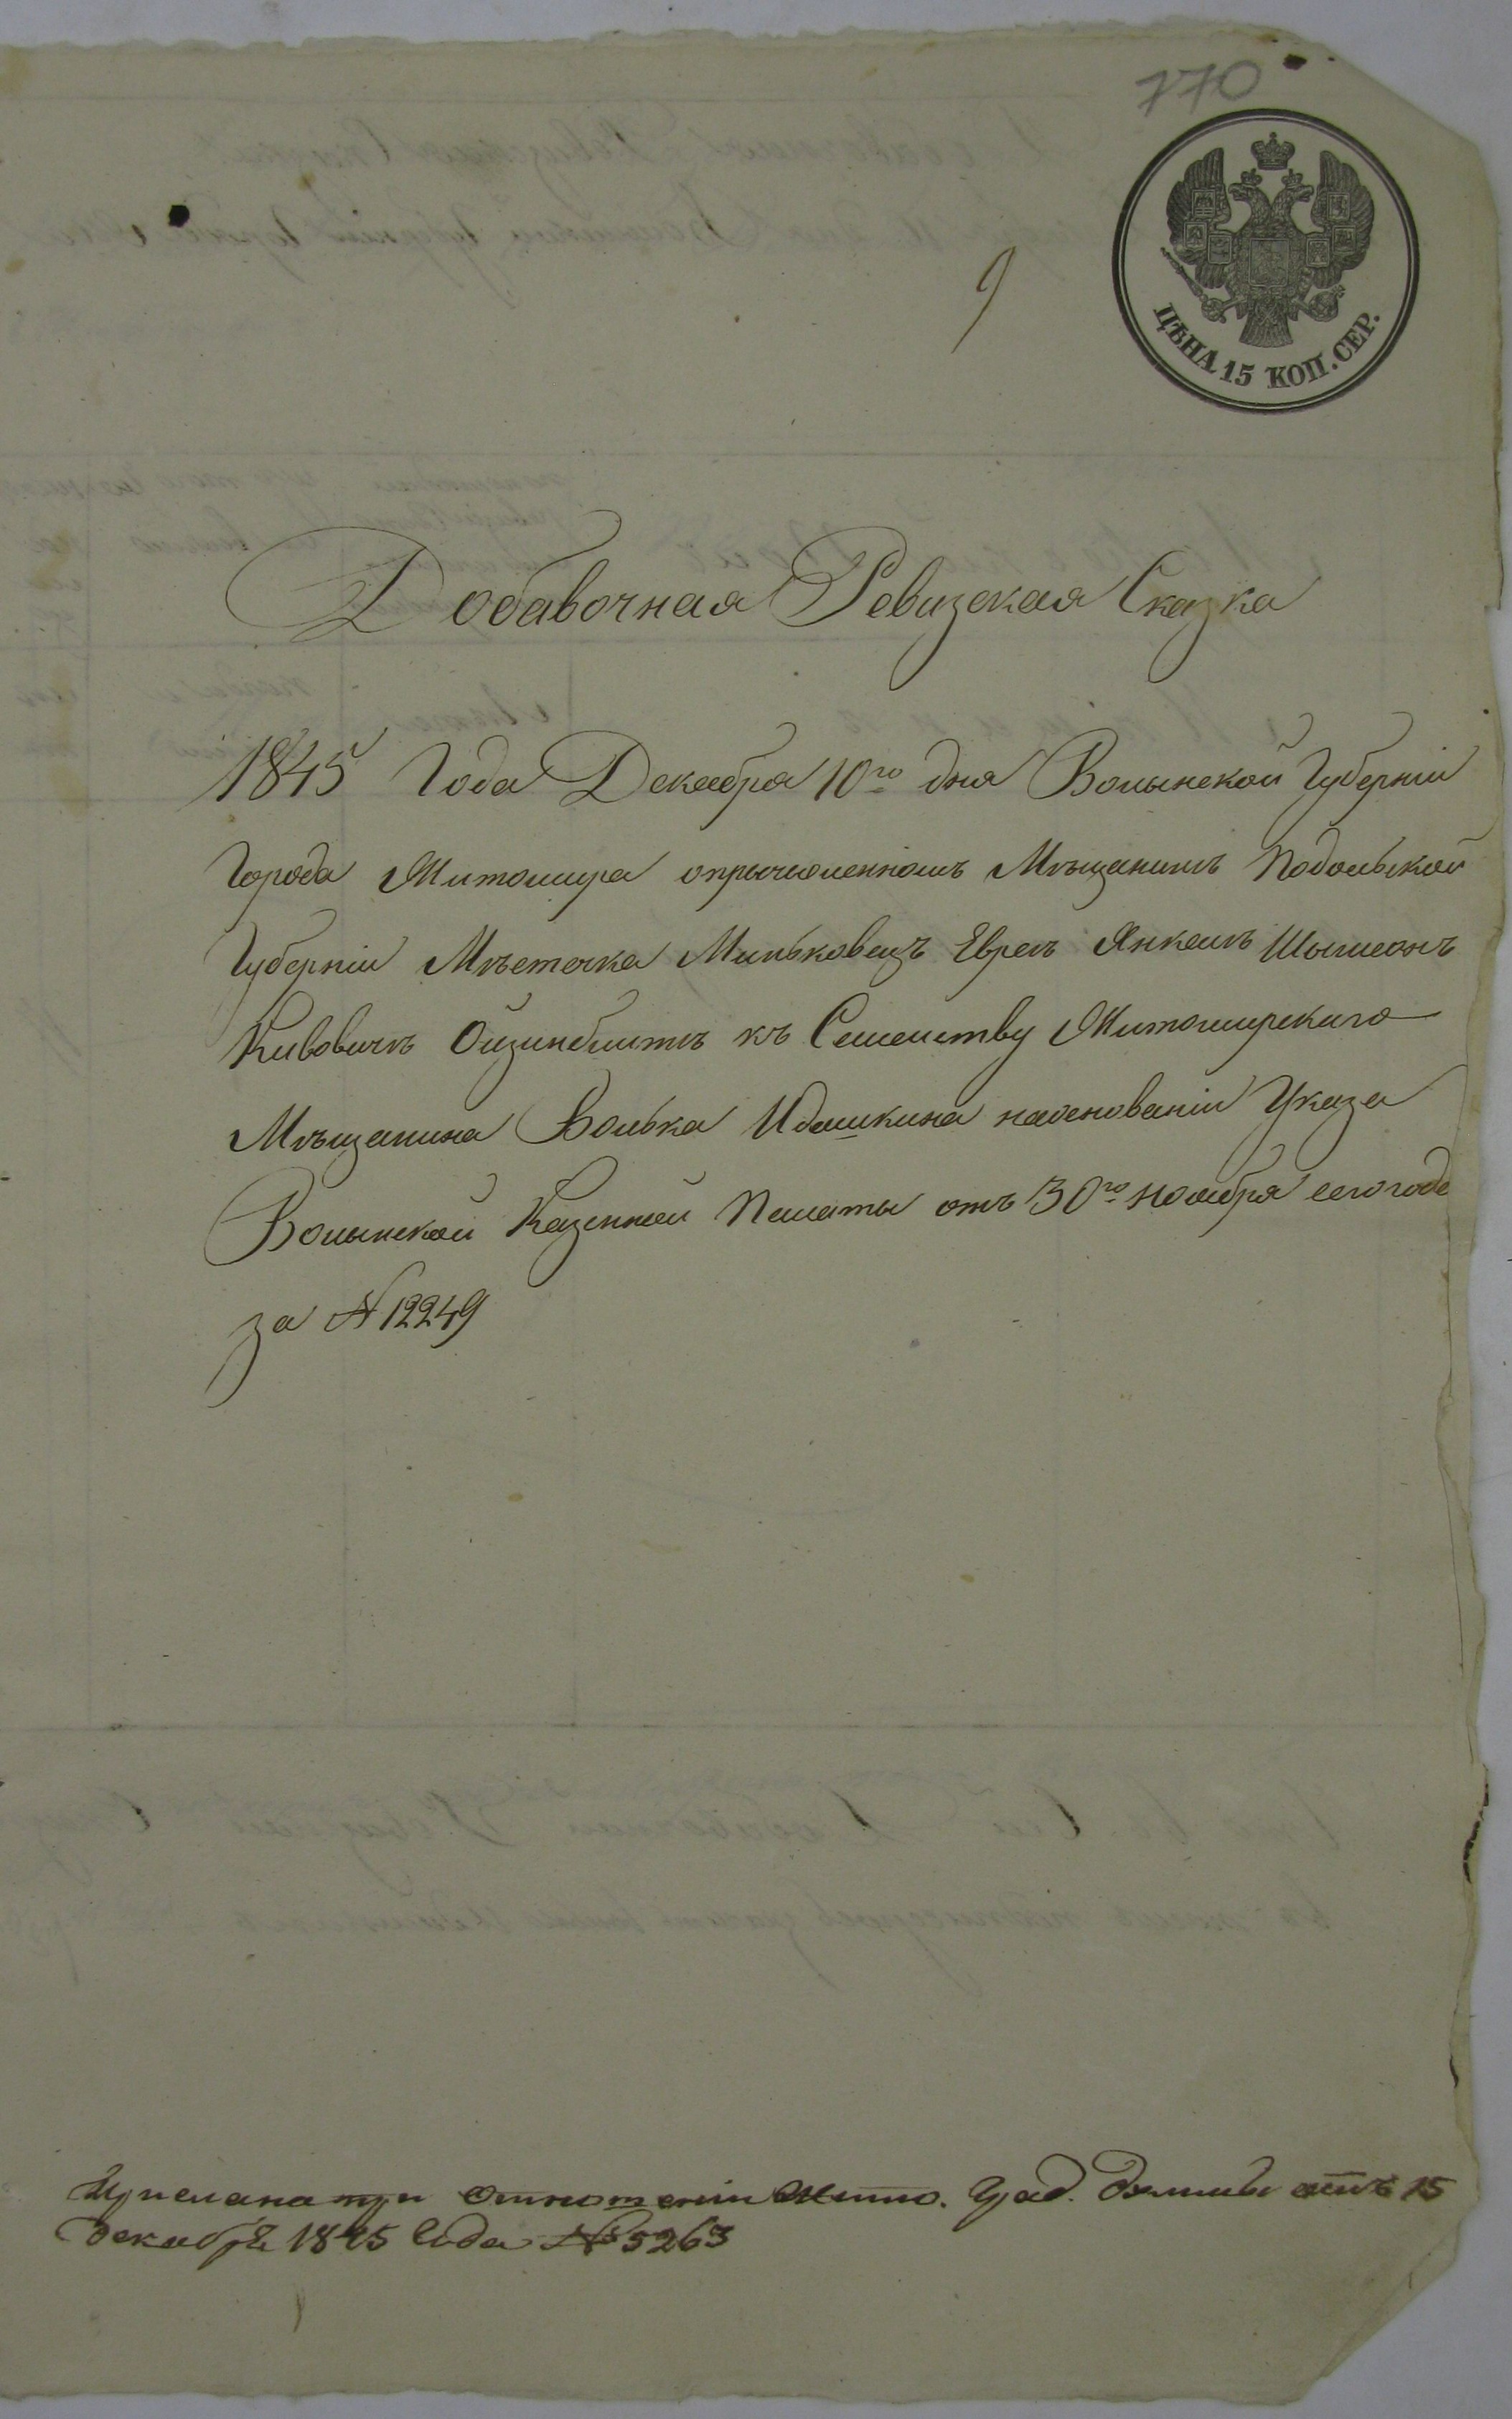 770
9
ЦѢНА 15 КОП. СЕР.
Добавочная Ревизская Сказка
1845 Года Декабря 10го дня Волынской Губерніи
Города Житомира опричисленномъ Мѣщанинѣ Подольской
Губерніи Мѣстечка Миньковецъ Еврей Янкель Шымсонъ
Кивовичъ къ Семейству Житомирскаго
Мѣщанина Волька Идашкина наоснованіи Указа
Волынской Казенной Палаты отъ 30го ноября сегогода
за № 12249
Прислана при отношеніи Жито. Град. Думы отъ 15
декабря 1845 Года № 5263